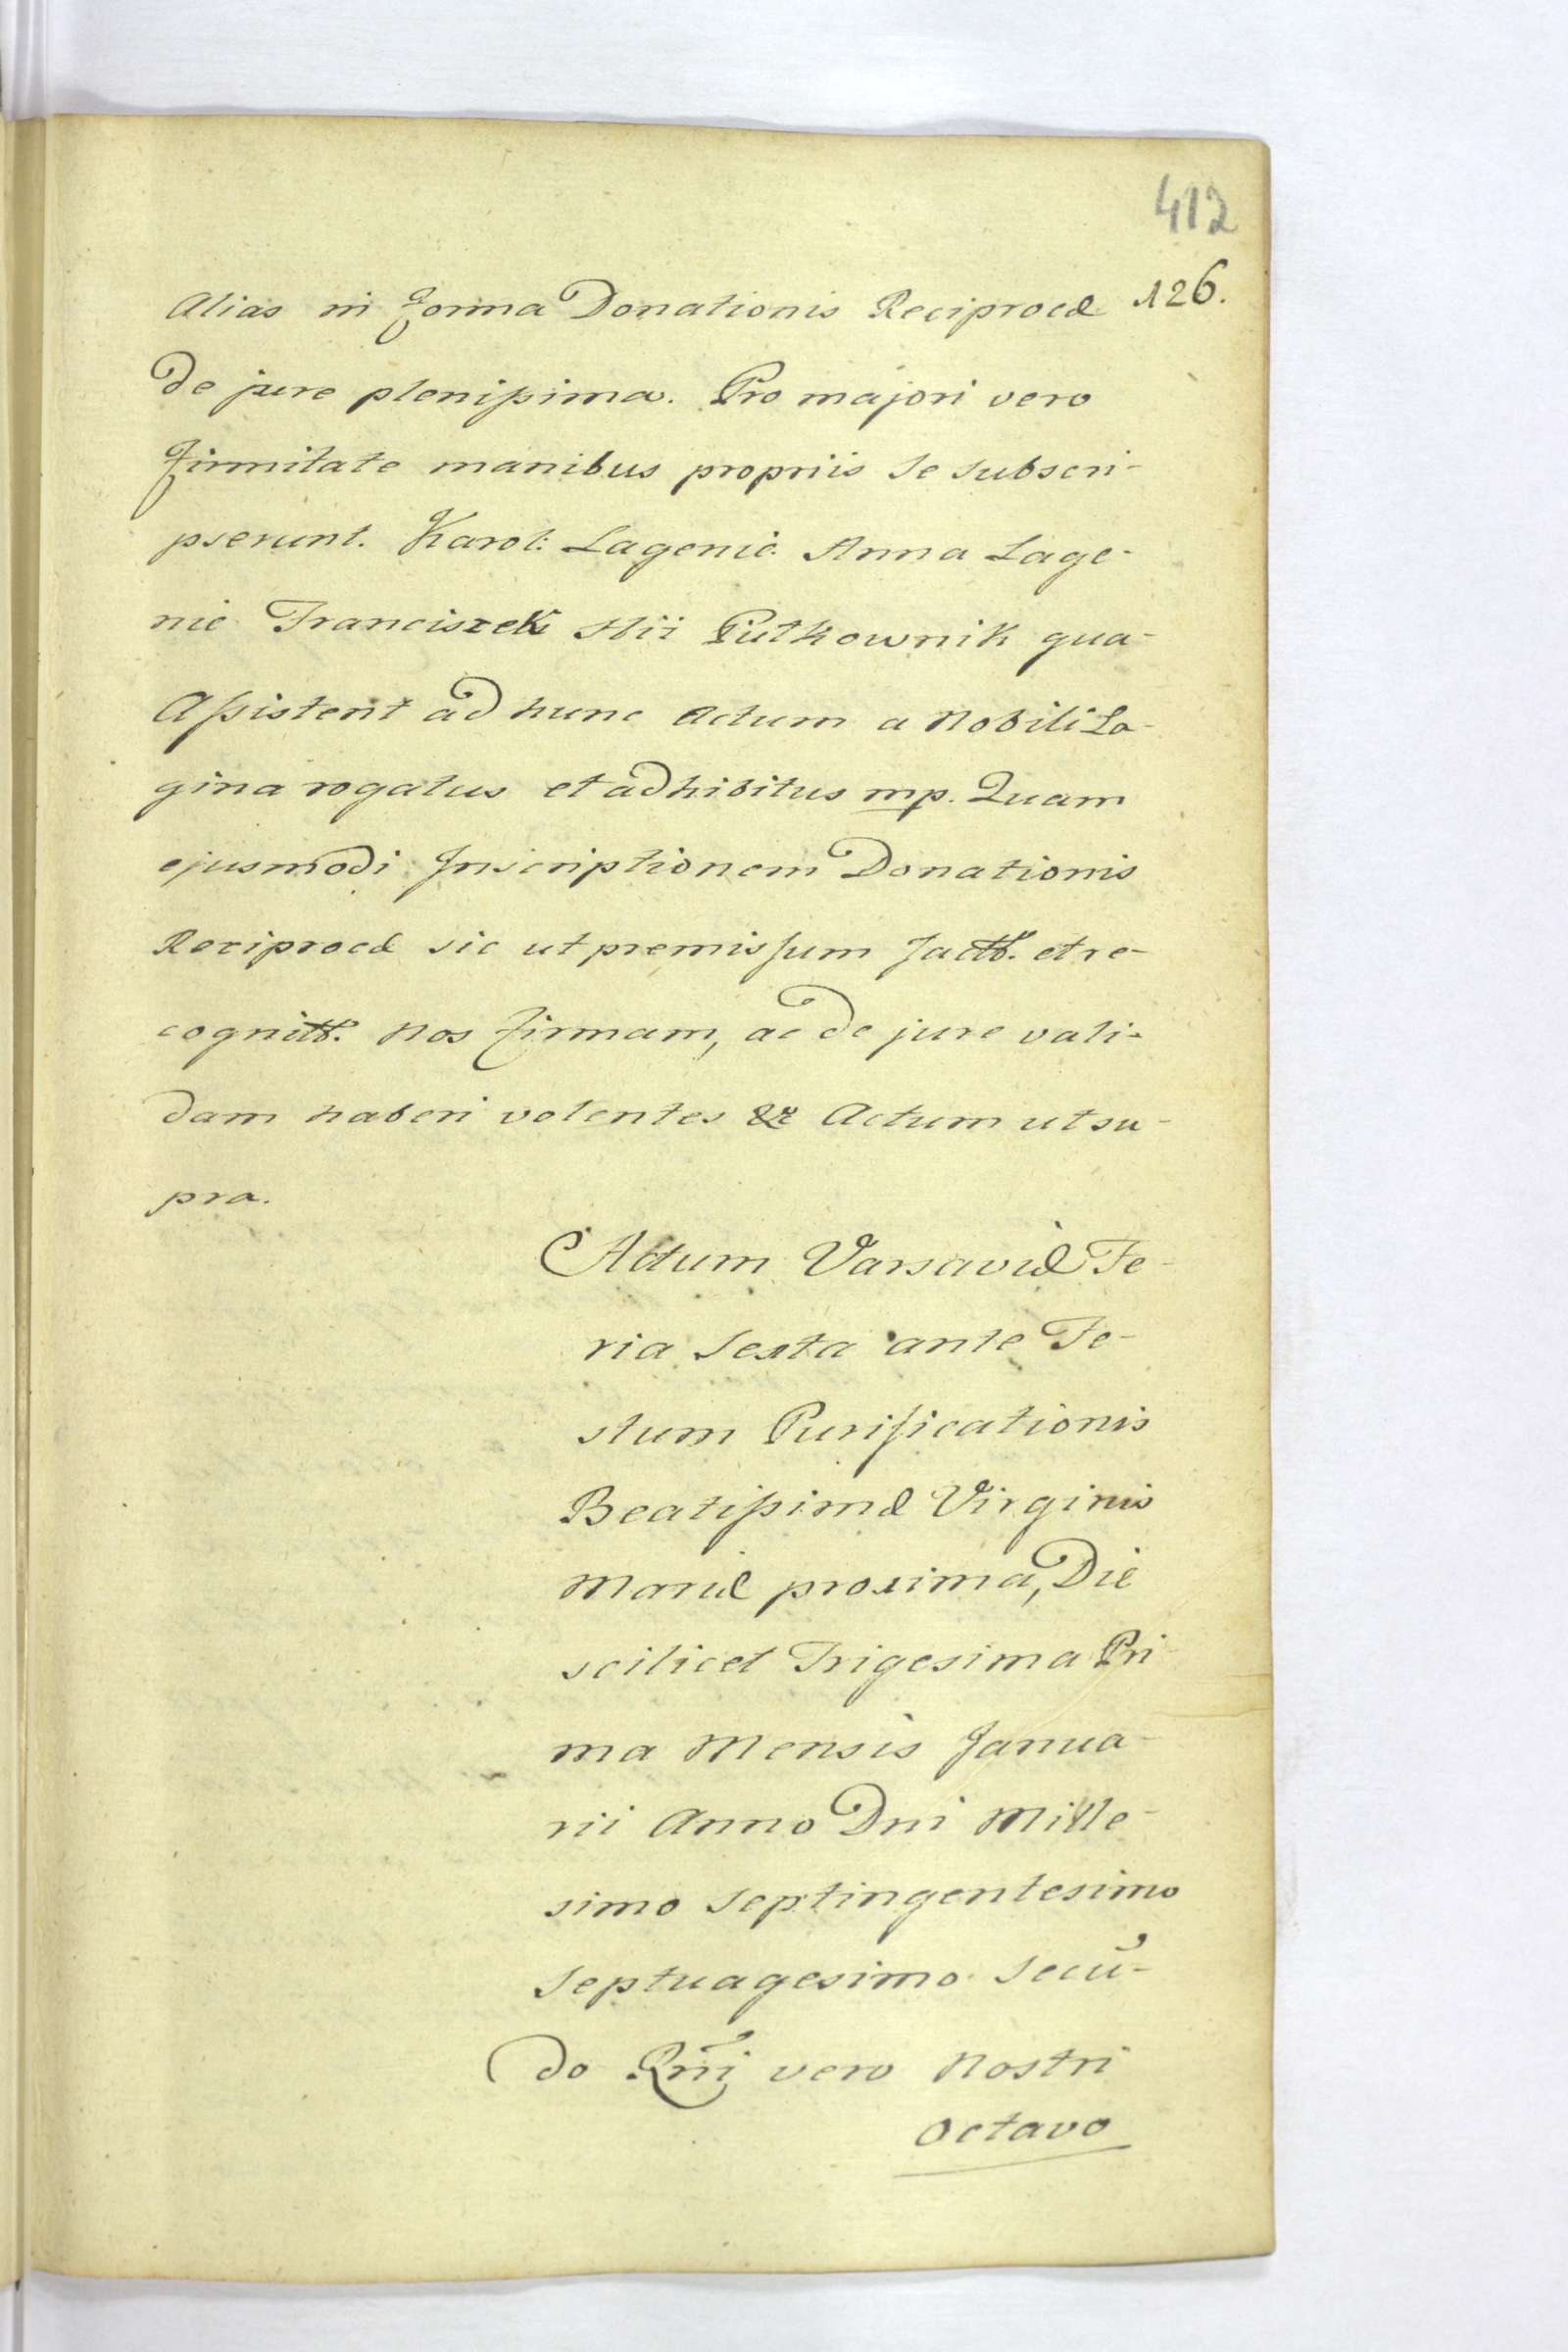 412
126.
Alias in forma Donationis Reciprocæ
de jure plenissima. Pro majori vero
firmitate manibus propriis se subscri-
pserunt. Karol: Lagenic. Anna Lage-
nic Franciszek Hii Pułkownik qua-
Assistent ad hunc Actum a Nobili La-
gina rogatus et adhibitus mp. Quam
ejusmodi Inscriptionem Donationis
Reciprocæ sic ut premissum fact. et re-
cognitt. Nos firmam, ac de jure vali-
dam haberi volentes &c Actum ut su-
pra.
Actum Varsaviæ Fe-
ria Sexta ante Fe-
stum Purificationis
Beatissimæ Virginis
Mariæ proxima, Die
scilicet Trigesima Pri-
ma Mensis Janua-
rii Anno Dni Mille-
simo Septingentesimo
Septuagesimo Secū-
do Rñi vero Nostri
Octavo